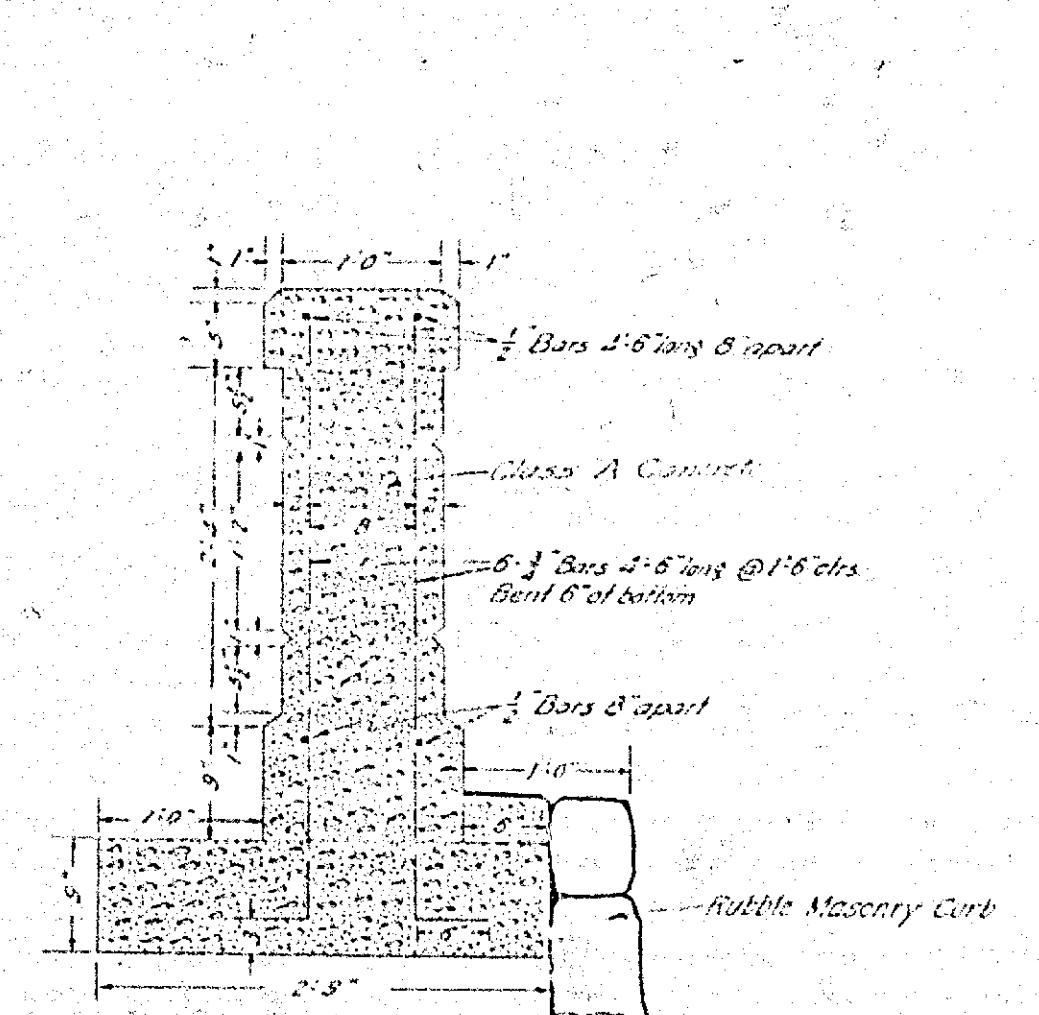 1" 1'-0" 1"
1"
5"
½" Bars 4'-6" long 8" apart
5½"
1"
Class A Concrete
8"
1'-2"
6-¾" Bars 4'-6" long @ 1'-6" ctrs.
Bent 6" at bottom
1"
5½"
½" Bars 8" apart
1"
9"
1'-0"
1'-0"
6"
9"
Rubble Masonry Curb
3"
6"
2'-9"